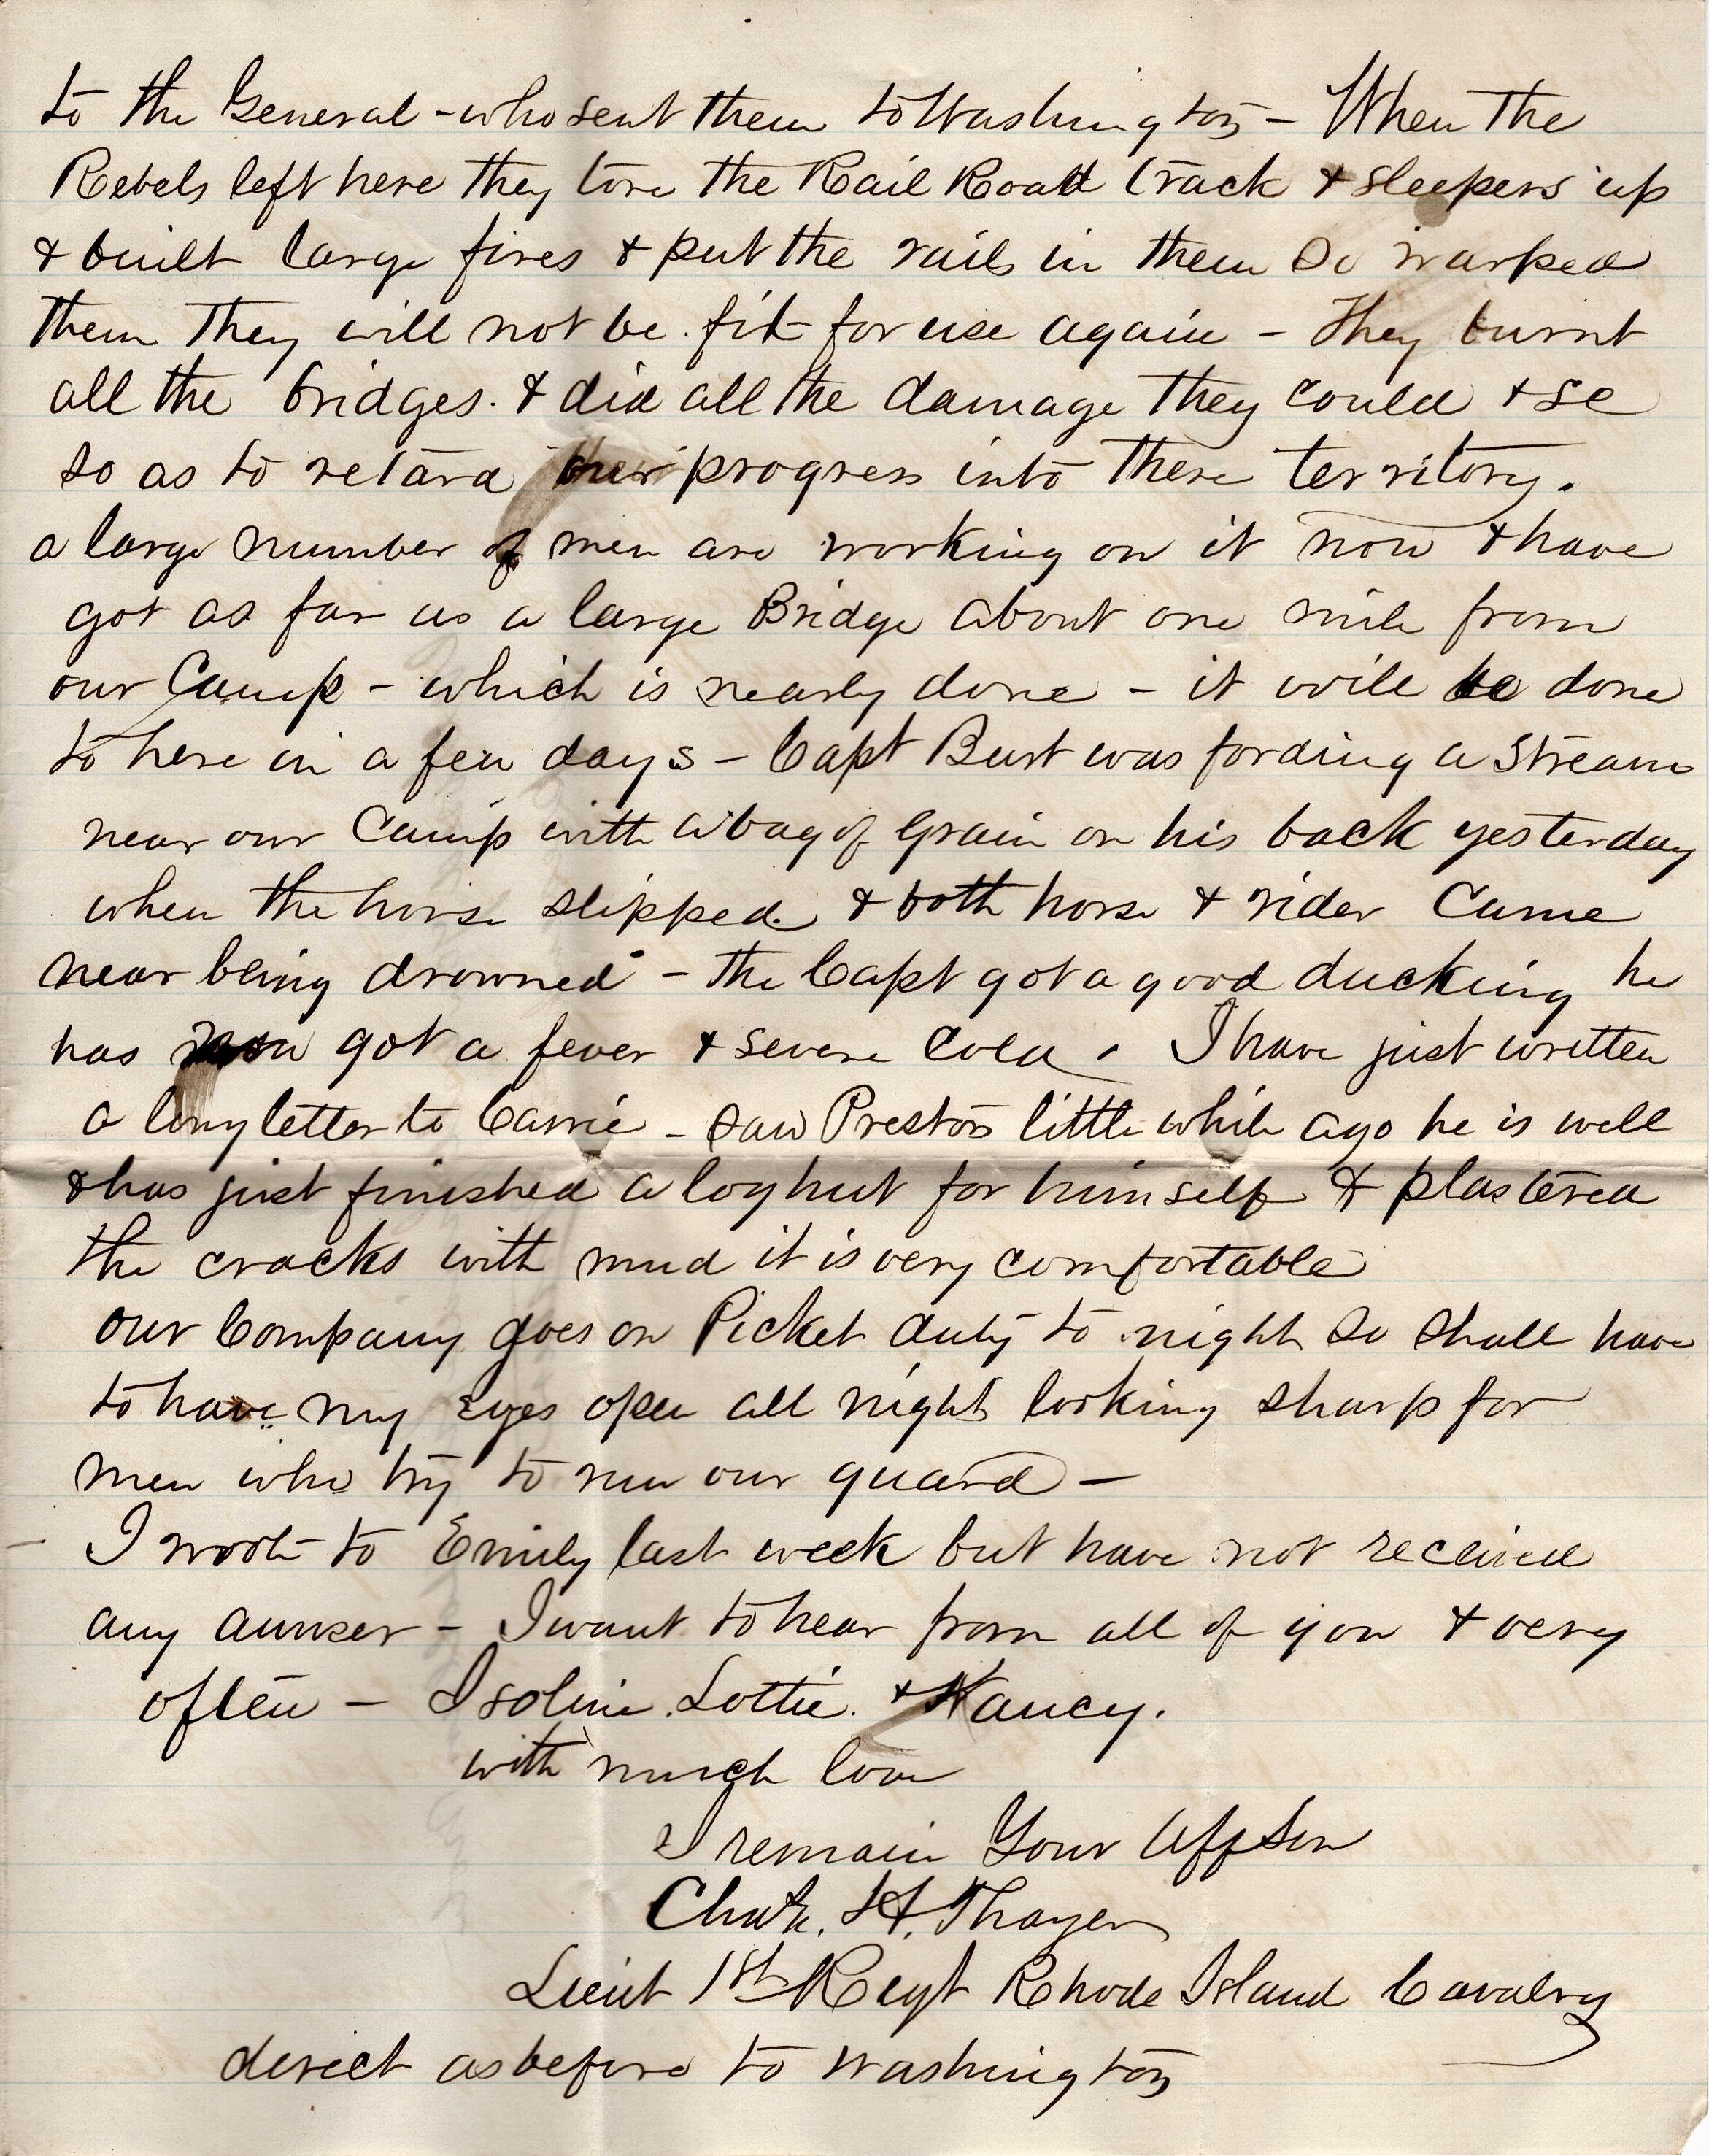 to the General - who sent them to Washington - When the
Rebels left here they tore the Rail Road track & sleepers up
& built large fires & put the rails in them So warped
them They will not be fit for use again - They burnt
all the bridges. & did all the damage they could & se
so as to retard our progress into there territory.
a large number of men are working on it now & have
got as far as a large Bridge about one mile from
our Camp - which is nearly done - it will be done
to here in a few days - Capt Burt was fording a Stream
near our Camp with a bag of Grain on his back yesterday
when the horse slipped & both horse & rider Came
near being drowned - the Capt got a good ducking he
has now got a fever & severe Cold. I have just written
a long letter to Carrie - saw Preston little while ago he is well
& has just finished a log hut for himself & plastered
the cracks with mud it is very comfortable
our Company goes on Picket duty to night So Shall have
to have my eyes open all night looking sharp for
men who try to run our guard -
- I wrote to Emily last week but have not received
any aunser - I want to hear from all of you & very
often - Isoline. Lottie. & Nancy.
with much love
I remain Your Aff Son
Chas. H. Thayer
Lieut 1st Regt Rhode Island Cavalry
direct as before to Washington